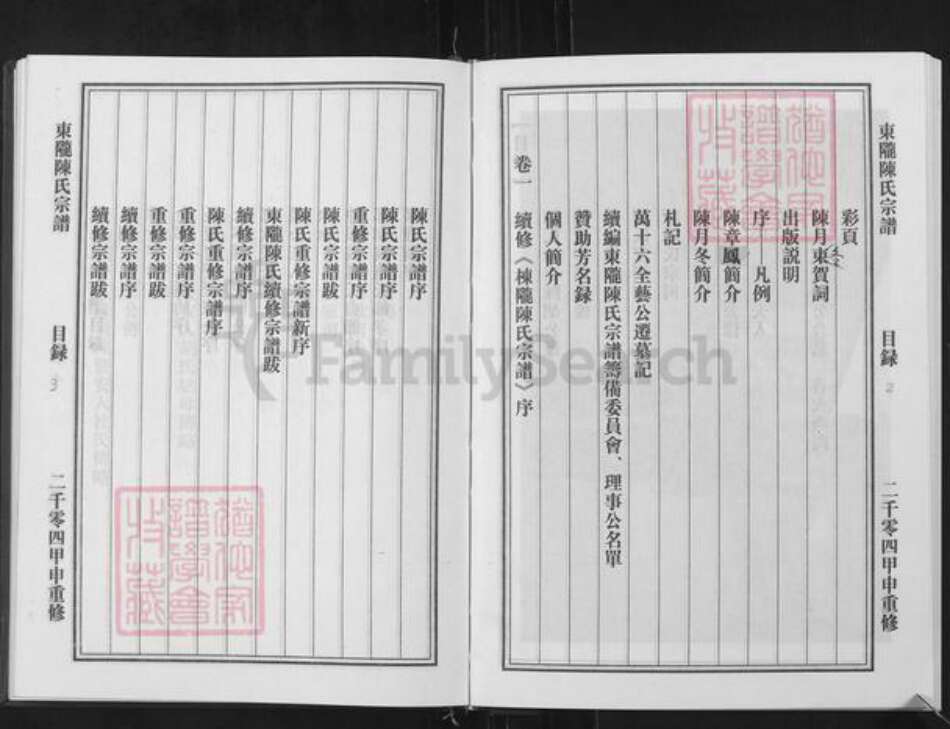 東隴陳氏宗譜 目録 2 二千零四甲申重修
彩頁
陳月東賀詞
出版説明
序——凡例
陳章鳳簡介
陳月冬簡介
札記
萬十六全藝公遷墓記
續編東隴陳氏宗譜籌備委員會、理事公名單
贊助芳名録
個人簡介
卷一 續修《棟隴陳氏宗譜》序
陳氏宗譜序
陳氏宗譜序
重修宗譜序
陳氏宗譜跋
陳氏重修宗譜新序
東隴陳氏續修宗譜跋
續修宗譜序
陳氏重修宗譜序
重修宗譜序
重修宗譜跋
續修宗譜序
續修宗譜跋
東隴陳氏宗譜 目録 3 二千零四甲申重修
FamilySearch